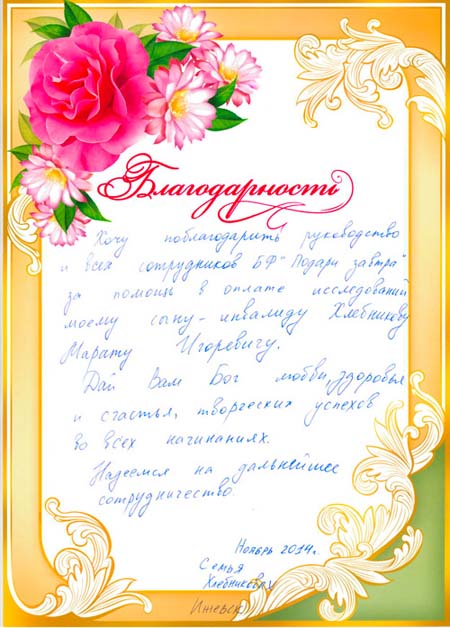 Благодарность
Хочу поблагодарить руководство
и всех сотрудников БФ "Подари завтра"
за помощь в оплате исследований
моему сыну-инвалиду Хлебникову
Марату Игоревичу.
Дай Вам Бог любви, здоровья
и счастья, творческих успехов
во всех начинаниях.
Надеемся на дальнейшее
сотрудничество.
Ноябрь 2014г.
Семья
Хлебниковых
Ижевск